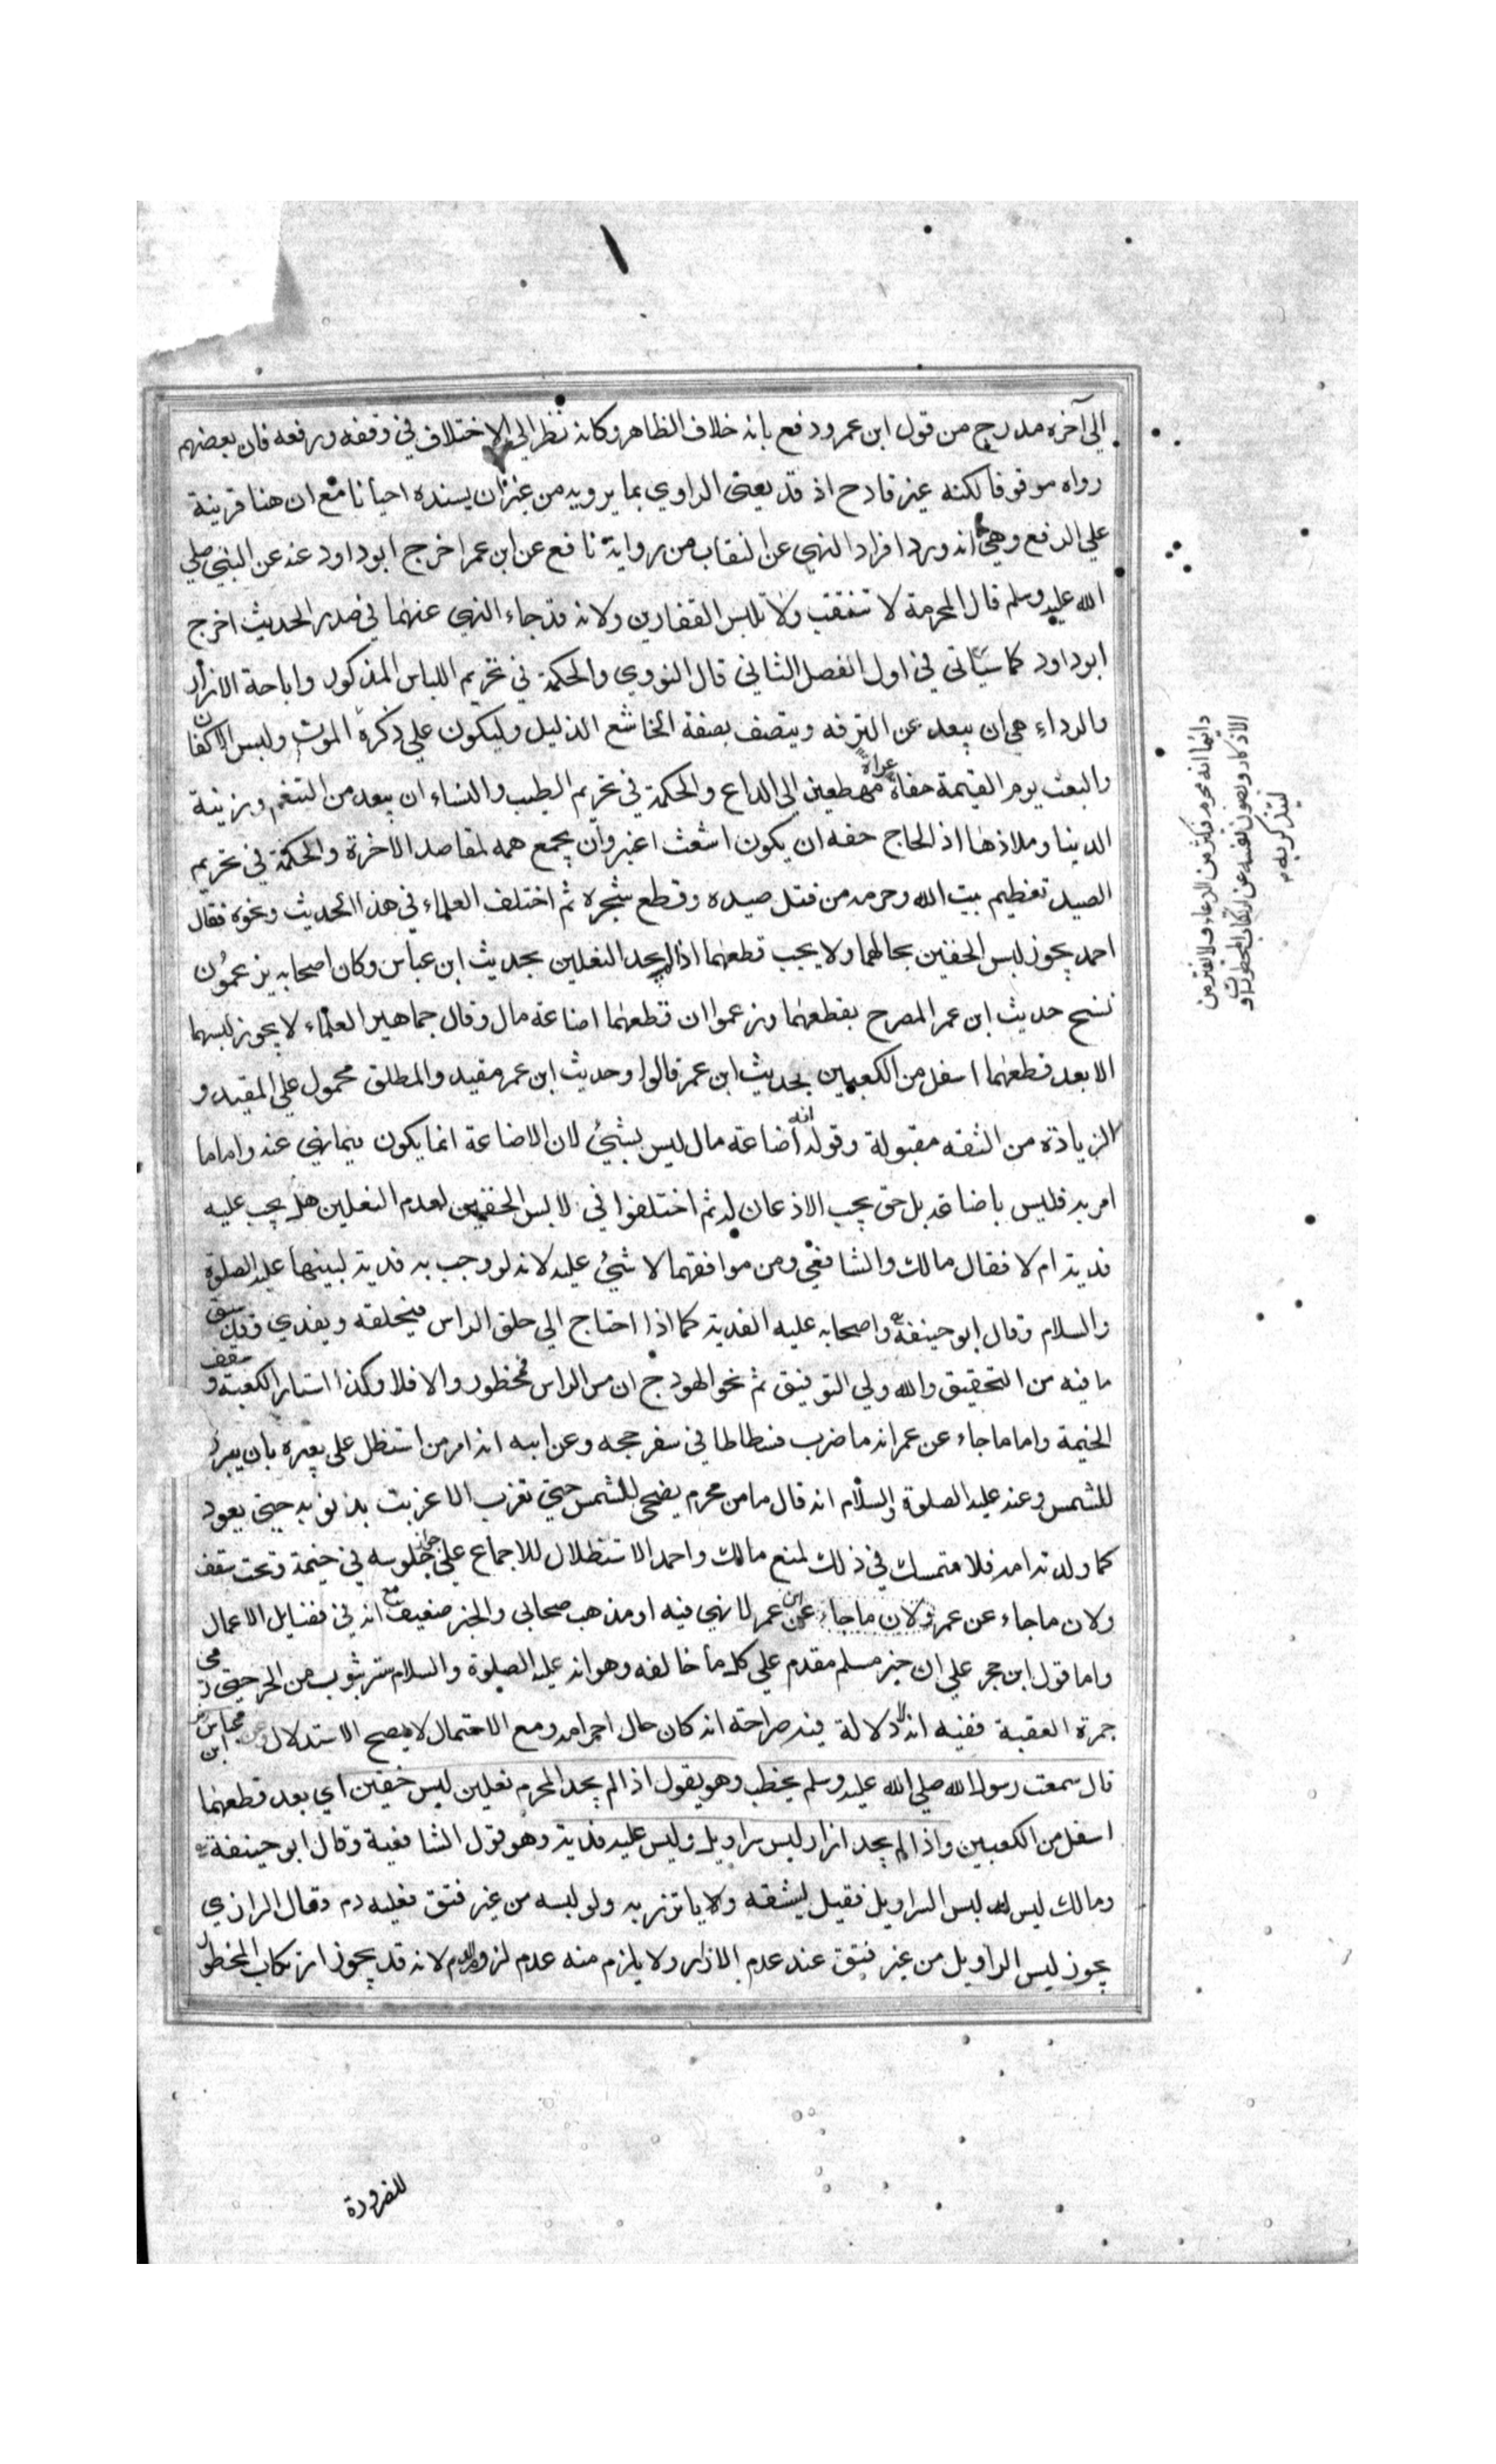 الي آخره مدرج من قول ابن عمر ودفع بانه خلاف الظاهر وكانه نظر الي الاختلاف في وقفه ورفعه فان بعضهم
رواه موقوفا لكنه غير قادح اذ قد يفتى الراوي بما يرويه من غير ان يسنده احيانا مع ان هنا قرينة
علي الرفع وهي انه ورد افراد النهي عن النقاب من رواية نافع عن ابن عمر اخرج ابو داود عنه عن النبي صلي
الله عليه وسلم قال المحرمة لا تنتقب ولا تلبس القفازين ولانه قد جاء النهي عنهما في صدر الحديث اخرج
ابو داود كما سيأتي في اول الفصل الثاني قال النووي والحكمة في تحريم اللباس المذكور واباحة الازار
والرداء هي ان يبعد عن الترفه ويتصف بصفة الخاشع الذليل وليكون علي ذكره الموت ولبس الاكفان
والبعث يوم القيمة حفاة عراة مهطعين الي الداع والحكمة في تحريم الطيب والنساء ان يبعد من التنعم وزينة
الدنيا وملاذها اذ الحاج حقه ان يكون اشعث اغبر وان يجمع همه لمقاصد الاخرة والحكمة في تحريم
الصيد تعظيم بيت الله وحرمه من قتل صيده وقطع شجره ثم اختلف العلماء في هذا الحديث ونحوه فقال
احمد يجوز لبس الخفين بحالهما ولا يجب قطعهما اذا لم يجد النعلين بحديث ابن عباس وكان اصحابه يزعمون
نسخ حديث ابن عمر المصرح بقطعهما وزعموا ان قطعهما اضاعة مال وقال جماهير العلماء لا يجوز لبسهما
الا بعد قطعهما اسفل من الكعبين بحديث ابن عمر قالوا وحديث ابن عمر مقيد والمطلق محمول علي المقيد و
الزيادة من الثقه مقبولة وقوله انه اضاعة مال ليس بشيئ لان الاضاعة انما يكون فيما نهي عنه واما ما
امر به فليس باضاعة بل حق يجب الاذعان له ثم اختلفوا في لابس الخفين لعدم النعلين هل يجب عليه
فدية ام لا فقال مالك والشافعي ومن موافقهما لا شيئ عليه لانه لو وجب به فدية لبينها عليه الصلوة
والسلام وقال ابو حنيفة واصحابه عليه الفدية كما اذا احتاج الي حلق الراس فيحلقه ويفدي وقد سبق
ما فيه من التحقيق والله ولي التوفيق ثم نحو الهودج ان مس الراس فمحظور والا فلا وكذا استار الكعبة و سقف
الخيمة واما ما جاء عن عمر انه ما ضرب فسطاطا في سفر حجه وعن ابنه انه امر من استظل علي بعيره بان يبرز
للشمس وعنه عليه الصلوة والسلام انه قال ما من محرم يضحي للشمس حتي تغرب الا غربت بذنوبه حتي يعود
كما ولدته امه فلا متمسك في ذلك لمنع مالك واحمد الاستظلال للاجماع علي جواز جلوسه في خيمة وتحت سقف
ولان ما جاء عن عمر ولان ما جاء عن ابن عمر لا نهي فيه او مذهب صحابي والخبر ضعيف مع انه في فضايل الاعمال
واما قول ابن حجر علي ان خبر مسلم مقدم علي كل ما خالفه وهو انه عليه الصلوة والسلام ستر بثوب من الحر حتي رمي
جمرة العقبة ففيه انه لا دلالة فيه صراحة انه كان حال احرامه ومع الاحتمال لا يصح الاستدلال وعن ابن عباس
قال سمعت رسول الله صلي الله عليه وسلم يخطب وهو يقول اذا لم يجد المحرم نعلين لبس خفين اي بعد قطعهما
اسفل من الكعبين واذا لم يجد ازار لبس سراويل وليس عليه فدية وهو قول الشافعية وقال ابو حنيفة
ومالك ليس له لبس السراويل فقيل يشقه ولا ياتزر به ولو لبسه من غير فتق فعليه دم وقال الرازي
يجوز لبس السراويل من غير فتق عند عدم الازار ولا يلزم منه عدم لزوم الدم لانه قد يجوز ارتكاب المحظور
للضرورة
دائما انه محرم فيكثر من الدعاء ولا يفتر من
الاذكار ويصون نفسه عن ارتكاب المحظورات و
ليتذكر به